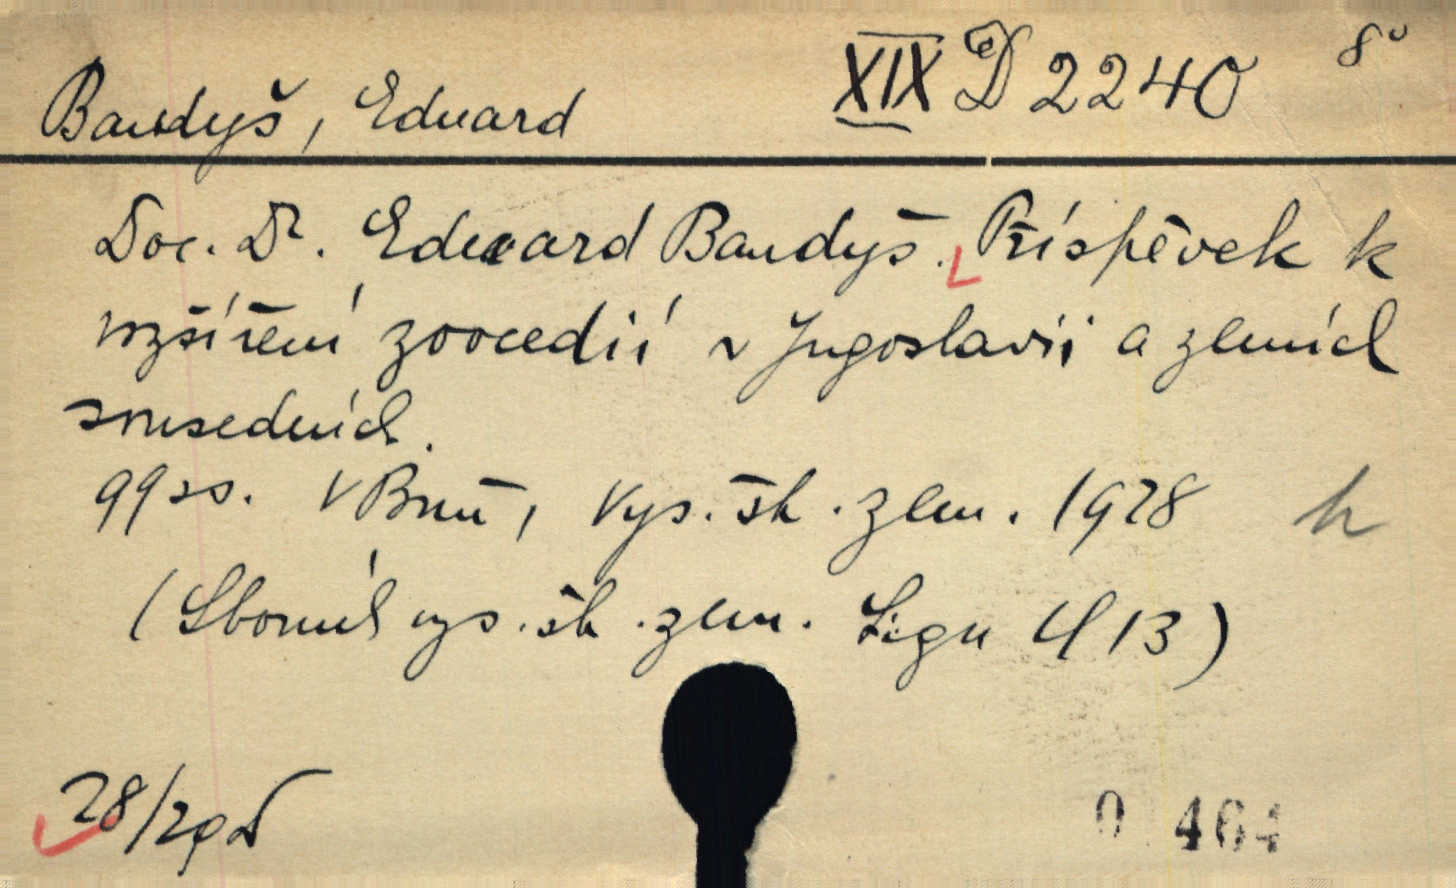 XIX D 2240 8°
Baudyš, Eduard
Doc. Dr. Eduard Baudyš. Příspěvek k
rozšíření zoocecidií v Jugoslavii a zemích
sousedních.
99 ss. V Brně, Vys. šk. zem. 1928 h
(Sborník vys. šk. zem. Sign C/13)
28/29 D
0 464